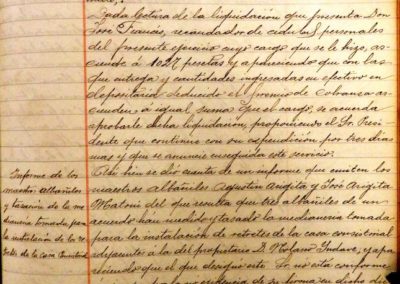 Dada lectura de la liquidación que presenta Don
José Francés, recaudador de cédulas personales
del presente ejercicio cuyo cargo que se le hizo, as-
ciende á 1027 pesetas y apareciendo que con las
que entrega y cantidades ingresadas en efectivo en
depositaría deducido el premio de cobranza as-
cienden á igual suma que el cargo, se acuerda
aprobarle dicha liquidación, proponiendo el Sr. Presi-
dente que continue con su expendición por tres dias
mas y que se anuncie enseguida este servicio.
Informe de los
maestros albañiles
y tasación de la me-
dianeria tomada para
la instalación de los re-
tretes de la casa Consistorial
Así bien se dió cuenta de un informe que emiten los
maestros albañiles Agustín Angita y José Angita
Matoni del que resulta que tres albañiles de un
acuerdo han medido y tasado la medianeria tomada
para la instalación de retretes de la casa consistorial
adyacentes á la del propietario D. y apa-
reciendo que el que este Sr. no está conforme